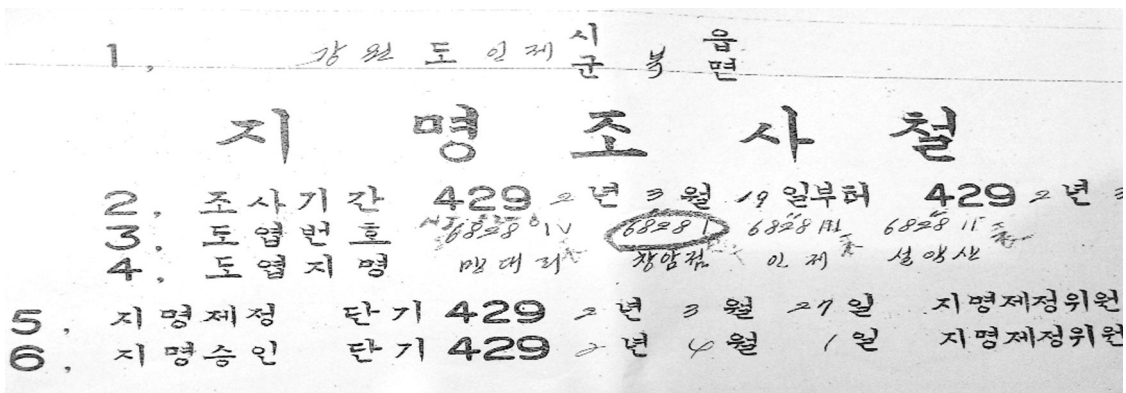 1, 강원도 인제 시군 북 읍면
지명조사철
2. 조사기간 4292년 3월 19일부터 4292년 3
3. 도엽번호 6828 IV 6828 I 6828 III 6828 II
4. 도엽지명 맨대리 창암점 인제 설악산
5. 지명제정 단기 4292년 3월 27일 지명제정위원
6. 지명승인 단기 4292년 4월 1일 지명제정위원